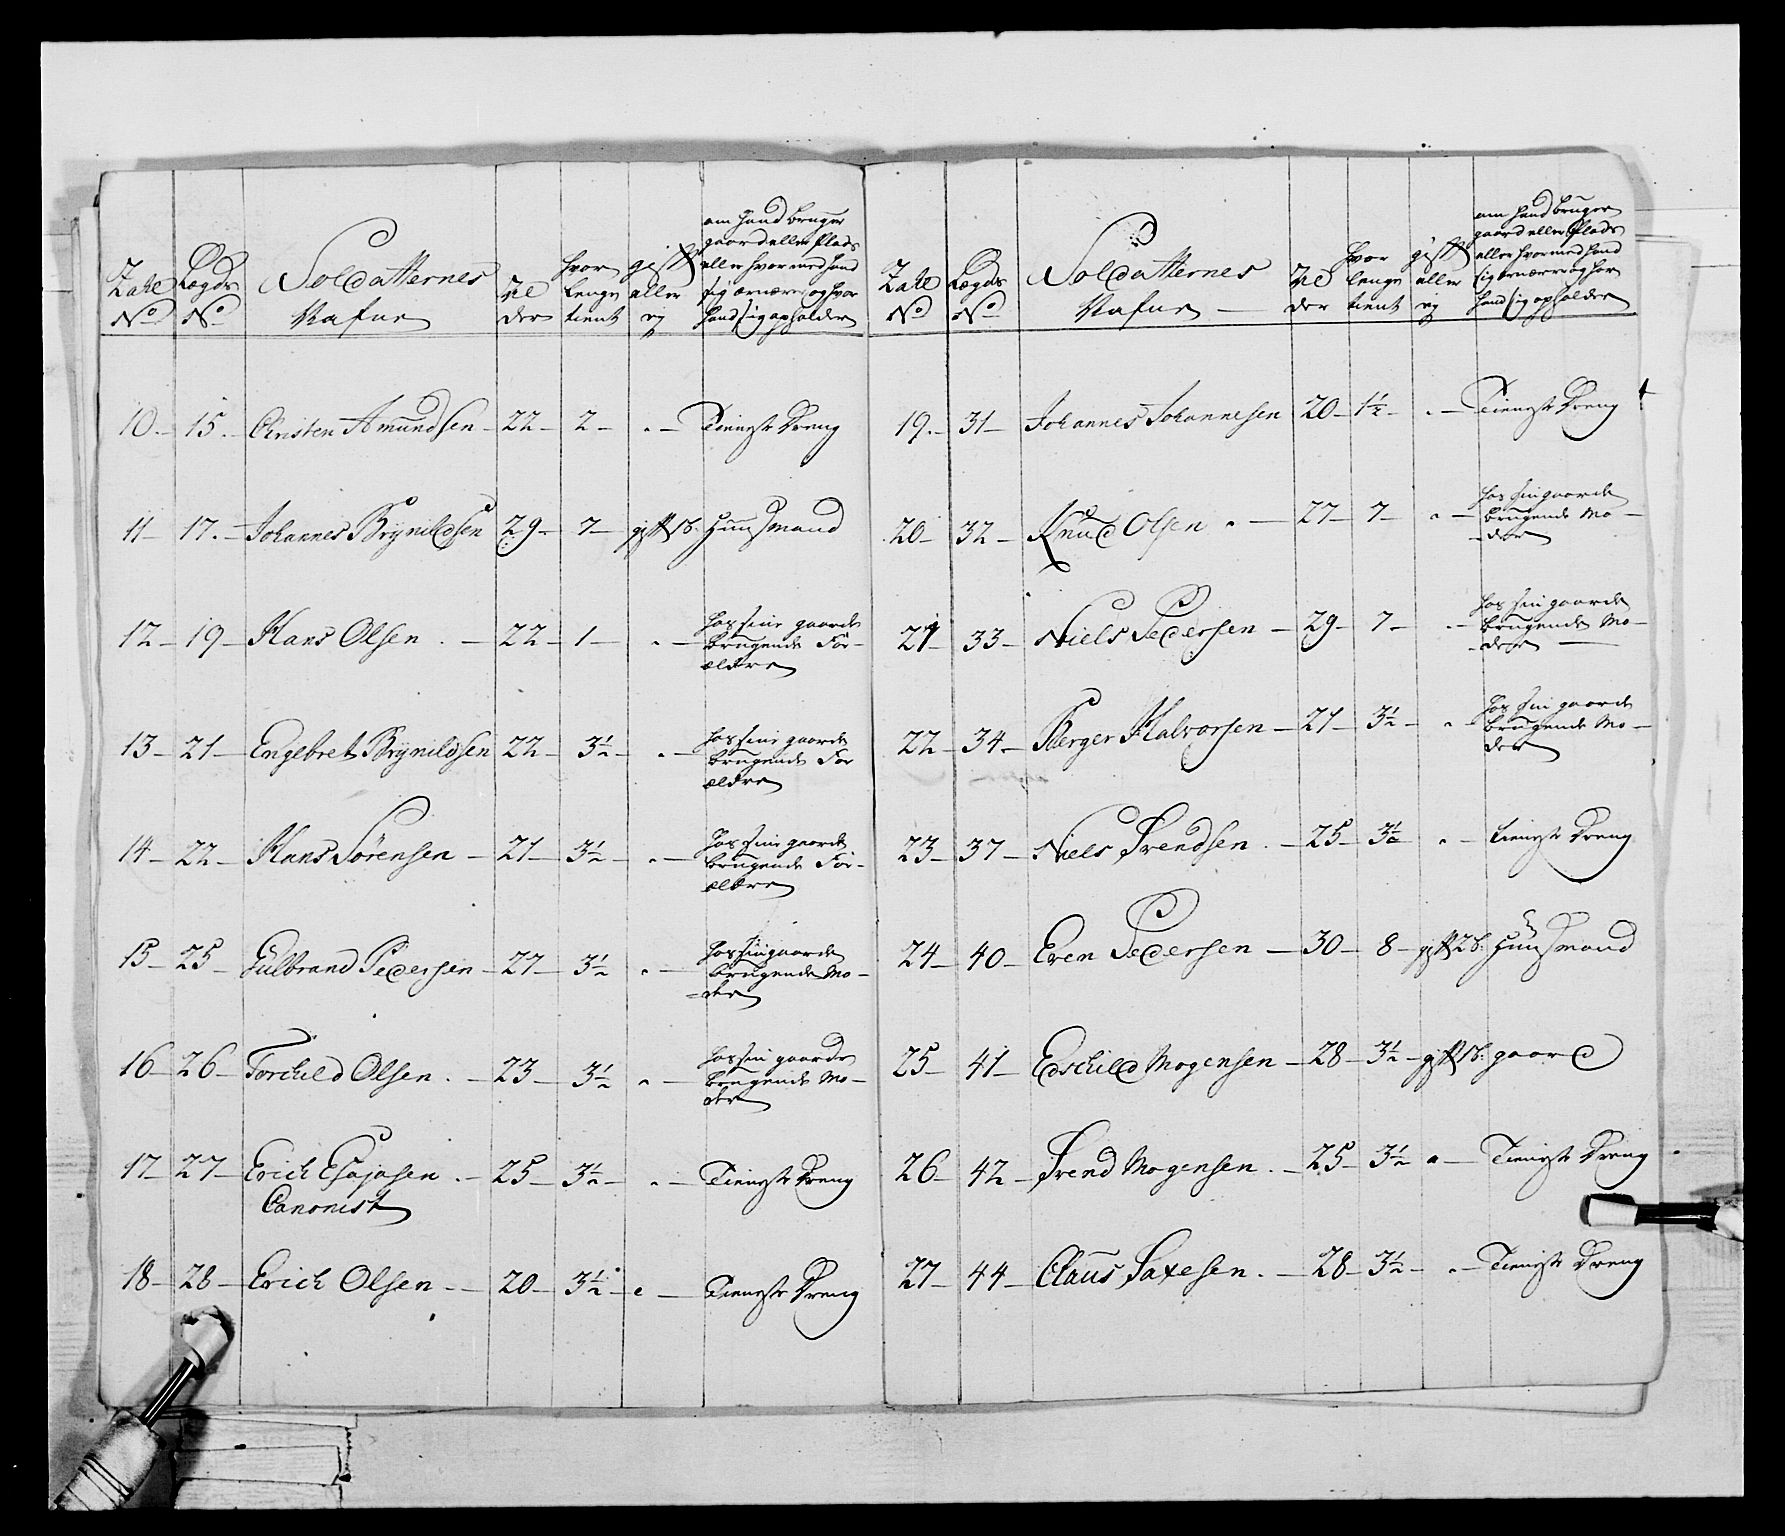 Zahl No
Lægds No
Soldatternes Nafne
Al der
hvor lenge tient
gift eller ey
om hand bruger gaard eller Plads eller hvormed hand sig ernærer og hvor hand sig opholder
10 – 15 – Christen Amundsen – 22 – 2 – " – Tieneste Dreng
11 – 17 – Johannes Brynildsen 29 – 7 – gift 1 b: Huusmand
12 – 19 – Hans Olsen – 22 – 1 – " – hos sine gaards brugende For-ældre
13 – 21 – Engebret Brynildsen 22 – 3½ – " – hos sine gaards brugende For ældre
14 – 22 – Hans Sörensen – 21 – 3½ – " – hos sine gaards brugende For-ældre
15 – 25 – Gulbrand Pedersen – 27 – 3½ " – hos sin gaards brugende Mo-der
16 – 26 – Torchild Olsen – 23 – 3½ " – hos sin gaards brugende Mo-der
17 – 27 – Erich Esajasen – 25 – 3½ – " – Tieneste Dreng
Canonist
18 – 28 – Erich Olsen – 20 – 3½ – " – Tieneste Dreng
Zahl No
Lægds No
Soldatternes Nafne –
Al der
hvor lenge tient
gift eller ey
om hand bruger gaard eller Plads eller hvormed hand sig ernærer og hvor hand sig opholder
19 – 31 – Johannes Johannesen 20 – 1½ – " – Tieneste Dreng
20 – 32 – Knud Olsen – 27 – 7 – " – hos sin gaards brugende Mo-der
21 – 33 – Niels Pedersen – 29 – 7 – " – hos sin gaards brugende Mo-der
22 – 34 – Berger Halvorsen – 21 – 3½ – " – hos sin gaards brugende Mo-der
23 – 37 – Niels Svendsen – 25 – 3½ " – tieneste Dreng
24 – 40 – Even Pedersen – 30 – 8 – gift 2 b: Huusmand
25 – 41 – Edschild Mogensen – 28 – 3½ – gift 1 b: gaard
26 – 42 – Svend Mogensen – 25 – 3½ " – Tieneste Dreng
27 – 44 – Claus Saxesen – 28 – 3½ – " – Tieneste Dreng